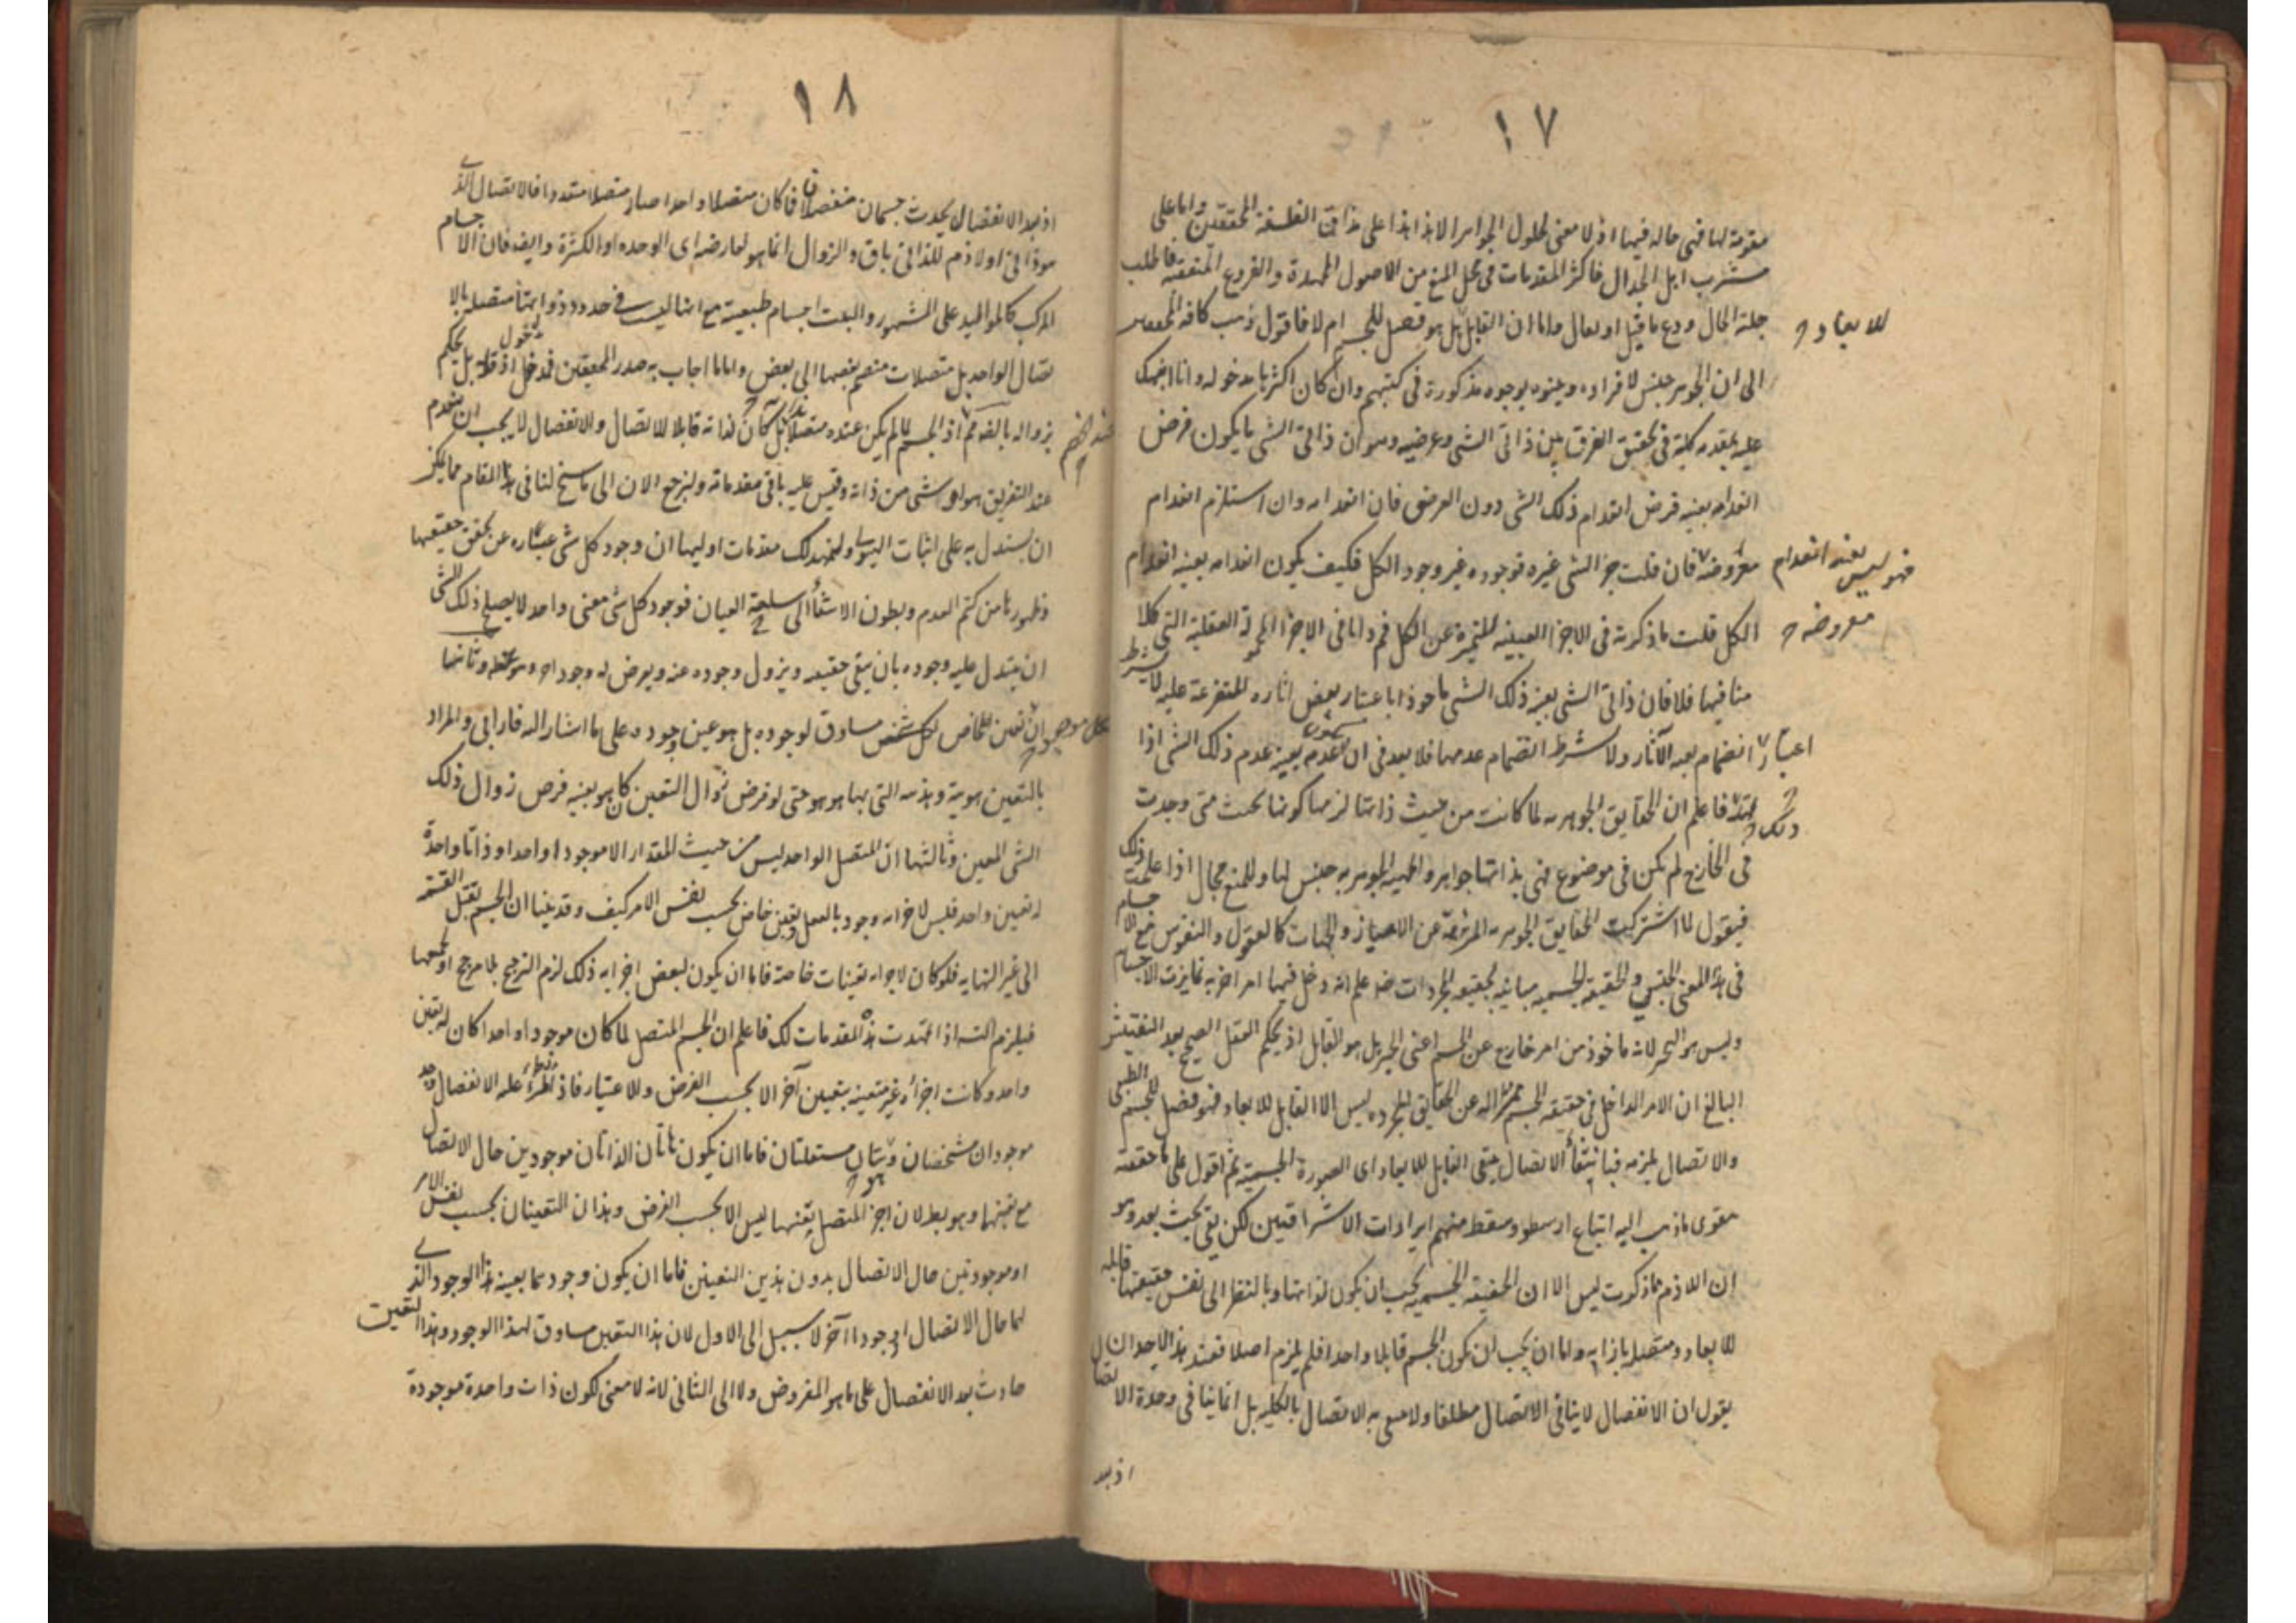 ١٧
مقومة لها فهي حالة فيها اذ لا معنى لحلول الجواهر الا هذا هذا على مذاق الفلسفة المحققين واما على
مشرب اهل الجدال فاكثر المقدمات في محل المنع من الاصول الممهدة والفروع المتفقه فاطلب
جلية الحال ودع ما قيل او يقال واما ان القابل بل هو فصل للجسم ام لا فاقول ذهب كافة المحققين
للابعاد
الى ان الجوهر جنس لافراده وبينوه بوجوه مذكورة في كتبهم وان كان اكثرها مدخوله وانا افهمك
عليه بمقدمه كلية في تحقيق الفرق بين ذاتي الشي وعرضيه وهو ان ذاتي الشي ما يكون فرض
انعدامه بعينه فرض انعدام ذلك الشي دون العرضى فان انعدامه وان استلزم انعدام
معروضه فان قلت جزء الشي غيره فوجوده غير وجود الكل فكيف يكون انعدامه بعينه انعدام
فهو ليس بعينه انعدام معروضه
الكل قلت ما ذكرته في الاجزا العينيه المتميزة عن الكل فم واما في الاجزا المحمولة العقلية التي كلا
منا فيها فلا فان ذاتي الشي بعينه ذلك الشي ماخوذا باعتبار بعض اثاره المتفرعة عليه لا بشرط
اعتبار انضمام بعد الآثار ولا بشرط انضمام عدمها فلا بعد في ان يكون عدمه بعينه عدم ذلك الشي اذا
تمهد ذلك فاعلم ان الحقايق الجوهريه لما كانت من حيث ذاتها لزمها كونها بحيث متى وجدت
في الخارج لم تكن في موضوع فهي بذاتها جواهر والجوهريه جنس لها وللمنع مجال اذا علمت ذلك
فيقول لما اشتركت الحقايق الجوهريه المنزهة عن الاحياز والجهات كالعقول والنفوس مع الاجسام
في هذا المعنى الجنسي والحقيقة الجسميه مباينه لحقيقه المجردات علم انه دخل فيها امر اخر به تمايزت الاجسام
وليس هو التحيز لانه ماخوذ من امر خارج عن الجسم اعنى الحيز بل هو القابل اذ يحكم العقل الصحيح بعد التفتيش
البالغ ان الامر الداخل في حقيقة الجسم المميز له عن الحقايق المجرده ليس الا القابل للابعاد فهو فصل للجسم الطبيعي
والاتصال يلزمه فبانتفاء الاتصال ينتفى القابل للابعاد اى الصورة الجسمية ثم اقول على ما حققته
يقوى ما ذهب اليه اتباع ارسطو وسقط منهم ايرادات الاشراقيين لكن بقى بحث بعد وهو
ان اللازم مما ذكرت ليس الا ان الحقيقة الجسمية يجب ان يكون لذاتها وبالنظر الى نفس حقيقتها قابله
للابعاد ومتصله بازايه واما ان يجب ان يكون الجسم قابلا واحدا فلم يلزم اصلا فعند هذا لاحد ان
يقول ان الانفصال لا ينافى الاتصال مطلقا ولا به الاتصال بالكليه بل انما ينافى وحدة الاتصال
اذ بعد
١٨
اذ بعد الانفصال يحدث جسمان منفصلان فما كان متصلا واحدا صار متصلا متعددا فالاتصال الذي
هو ذاتى او لازم للذاتى باق والزوال انما هو لعارضه اى الوحده او الكثرة وايضا فان الاجسام
المركب كالمواليد على المشهور والبعث اجسام طبيعية مع انها ليست في حدود ذواتها متصله بالا
تصال الواحد بل متصلات منضم بعضها الى بعض واما ما اجاب به صدر المحققين فمدخول اذ قلة بل يحكم
بزواله بالضم اذ الجسم لما لم يكن عنده متصلا بذاته بل كان لذاته قابلا للاتصال والانفصال لا يجب ان ينعدم
عند الخصم
عند التفريق هو او شى من ذاته وقس عليه باقى مقدماته ولنرجع الان الى ما سنح لنا في هذا المقام مما يمكن
ان يستدل به على اثبات الهيولى ولنمهد لك مقدمات اوليها ان وجود كل شى عبارة عن تحقق حقيقتها
وظهورها من كتم العدم وبطون الاشياء الى ساحة العيان فوجود كل شى معنى واحد لا يصلح ذلك الشي
ان يتبدل عليه وجوده بان يبقى حقيقه ويزول وجوده عنه ويعرض له وجود اخر وثانيها
ان تعين الخاص لكل شخص مساوق لوجوده بل هو عين وجوده على ما اشار اليه فارابى والمراد
بالتعين هوية وهذيه التى بها هو هو حتى لو فرض زوال التعين كان هو بعينه فرض زوال ذلك
الشى المعين وثالثها ان المتصل الواحد ليس من حيث المقدار الا موجودا واحدا وذاتا واحدة
له تعين واحد فليس لاجزائه وجود بالفعل وتعين خاص بحسب نفس الامر كيف وقد بينا ان الجسم يقبل القسمة
الى غير النهايه فلو كان لاجزائه تعينات خاصة فاما ان يكون لبعض اجزائه ذلك لزم الترجيح بلا مرجح او لجميعها
فيلزم التسـ اذا تمهدت هذه المقدمات لك فاعلم ان الجسم المتصل لما كان موجودا واحدا كان له تعين
واحد وكانت اجزاؤه غير متعينه بتعين آخر الا بحسب الفرض والاعتبار فاذا طرء عليه الانفصال وجد
موجودان مشخصان وذاتان مستقلتان فاما ان يكون هاتان الذاتان موجودين حال الاتصال
مع تعينهما وهو بط لان اجزاء المتصل تعينها ليس الا بحسب الفرض وهذان التعينان بحسب نفس الامر
او موجودتين حال الاتصال بدون هذين التعينين فاما ان يكون وجودهما بعينه هذا الوجود الذي
لهما حال الانفصال او وجودا آخر لا سبيل الى الاول لان هذا التعين مساوق لهذا الوجود وهذا التعين
حادث بعد الانفصال على ما هو المفروض ولا الى الثانى لانه لا معنى لكون ذات واحدة موجودة